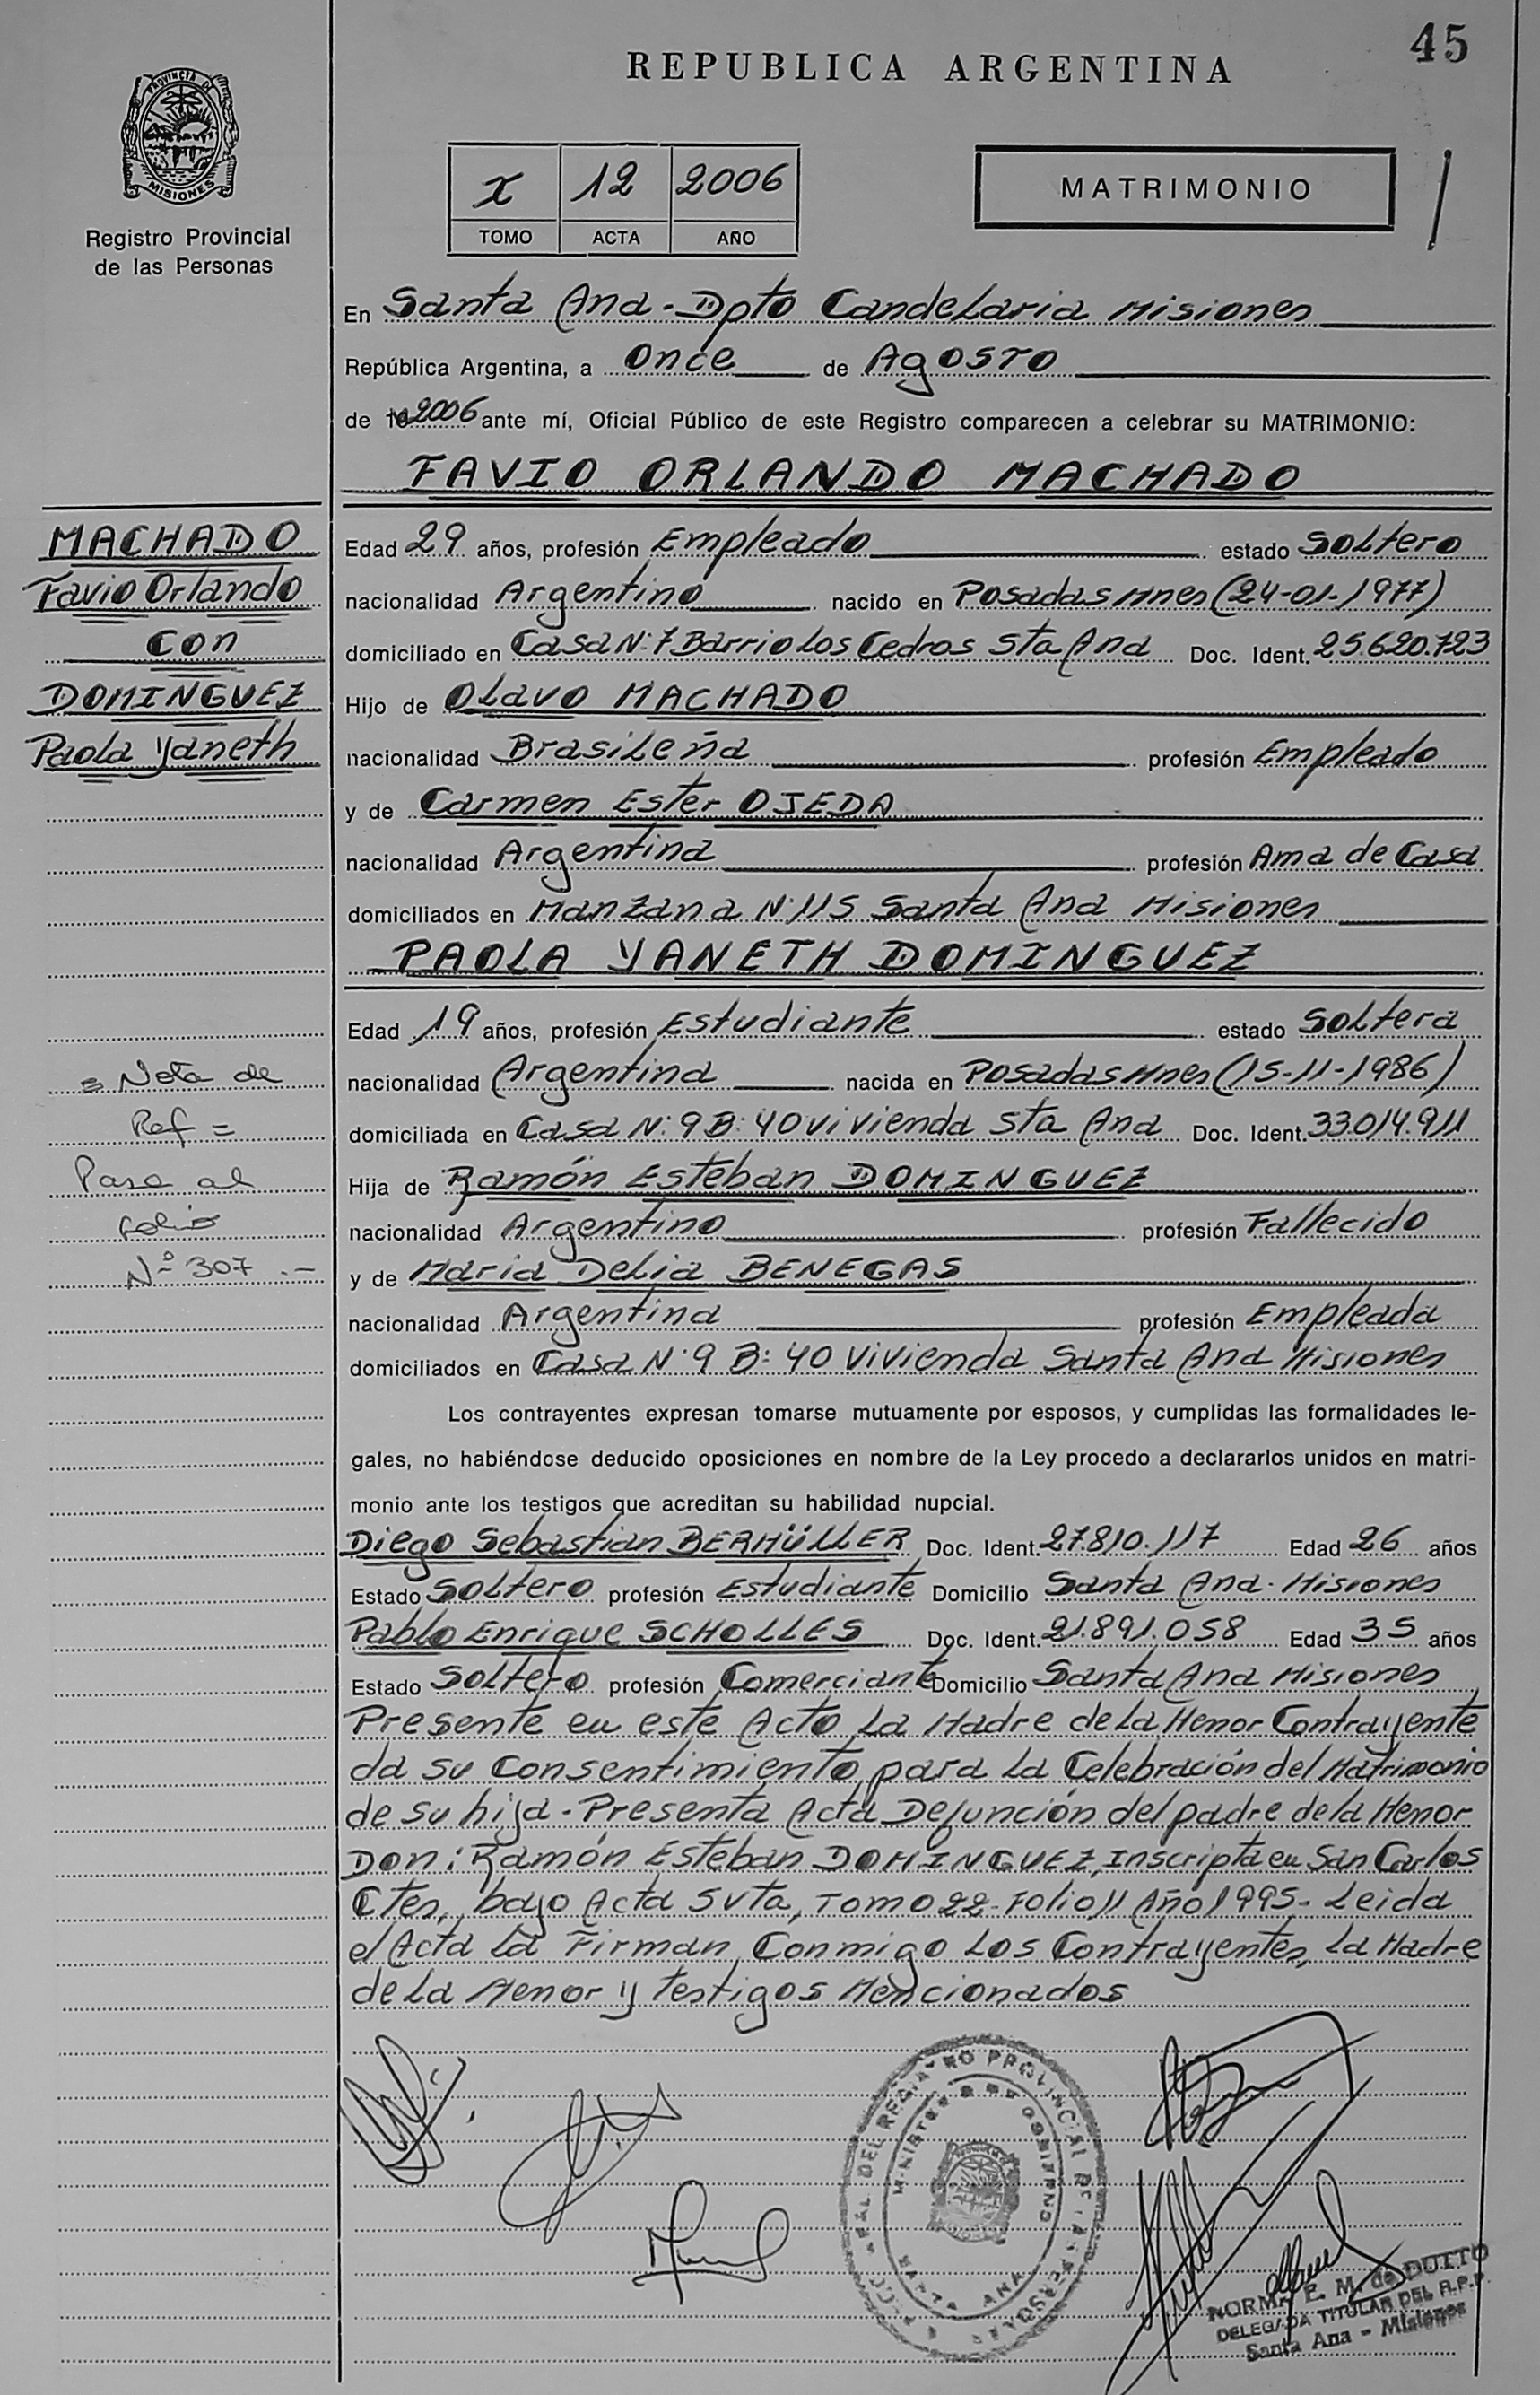 45
REPUBLICA ARGENTINA
PROVINCIA DE
MISIONES
Registro Provincial
de las Personas
X 12 2006
TOMO ACTA AÑO
MATRIMONIO
En Santa Ana - Dpto Candelaria Misiones
República Argentina, a Once de Agosto
de 2006 ante mí, Oficial Público de este Registro comparecen a celebrar su MATRIMONIO:
FAVIO ORLANDO MACHADO
MACHADO
Favio Orlando
con
DOMINGUEZ
Paola Yaneth
Edad 29 años, profesión Empleado estado Soltero
nacionalidad Argentino nacido en Posadas Mnes (24-01-1977)
domiciliado en Casa N:7 Barrio Los Cedros Sta Ana Doc. Ident. 25.620.723
Hijo de Olavo MACHADO
nacionalidad Brasileña profesión Empleado
y de Carmen Ester OJEDA
nacionalidad Argentina profesión Ama de Casa
domiciliados en Manzana N:115 Santa Ana Misiones
PAOLA YANETH DOMINGUEZ
Edad 19 años, profesión Estudiante estado Soltera
nacionalidad Argentina nacida en Posadas Mnes (15-11-1986)
domiciliada en Casa N:9 B: 40 vivienda Sta Ana Doc. Ident. 33.014.911
Hija de Ramón Esteban DOMINGUEZ
nacionalidad Argentino profesión Fallecido
y de Maria Delia BENEGAS
nacionalidad Argentina profesión Empleada
domiciliados en Casa N:9 B: 40 Vivienda Santa Ana Misiones
= Nota de
Ref =
Pasa al
folio
Nº 307 .-
Los contrayentes expresan tomarse mutuamente por esposos, y cumplidas las formalidades le-
gales, no habiéndose deducido oposiciones en nombre de la Ley procedo a declararlos unidos en matri-
monio ante los testigos que acreditan su habilidad nupcial.
Diego Sebastian BERMÜLLER Doc. Ident. 27.810.117 Edad 26 años
Estado Soltero profesión Estudiante Domicilio Santa Ana - Misiones
Pablo Enrique SCHOLLES Doc. Ident. 21.891.058 Edad 35 años
Estado Soltero profesión Comerciante Domicilio Santa Ana Misiones
Presente en este Acto La Madre de la Menor Contrayente
da su Consentimiento para la Celebración del Matrimonio
de su hija - Presenta Acta Defunción del padre de la Menor
Don: Ramón Esteban DOMINGUEZ, Inscripta en San Carlos
Ctes, bajo Acta S/ta, Tomo 22 - Folio 11 Año 1995 - Leida
el Acta la Firman Conmigo Los Contrayentes, la Madre
de la Menor y testigos Mencionados
DEL REGISTRO PROVINCIAL DE LAS PERSONAS
MINISTERIO DE GOBIERNO
SANTA ANA
NORMA E. M. de DUTTO
DELEGADA TITULAR DEL R.P.P.
Santa Ana - Misiones